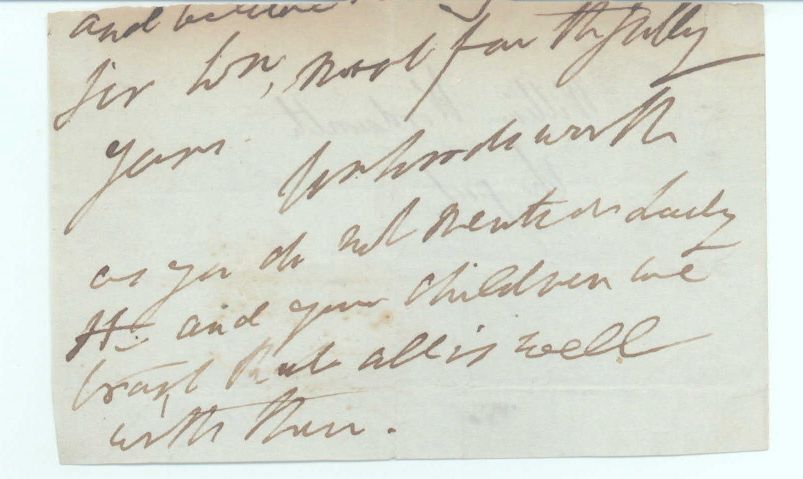 and believe
Sir Wm, most faithfully
yours
Wm Wordsworth
as you do not mention Lady
H. and your children we
trust that all is well
with them.